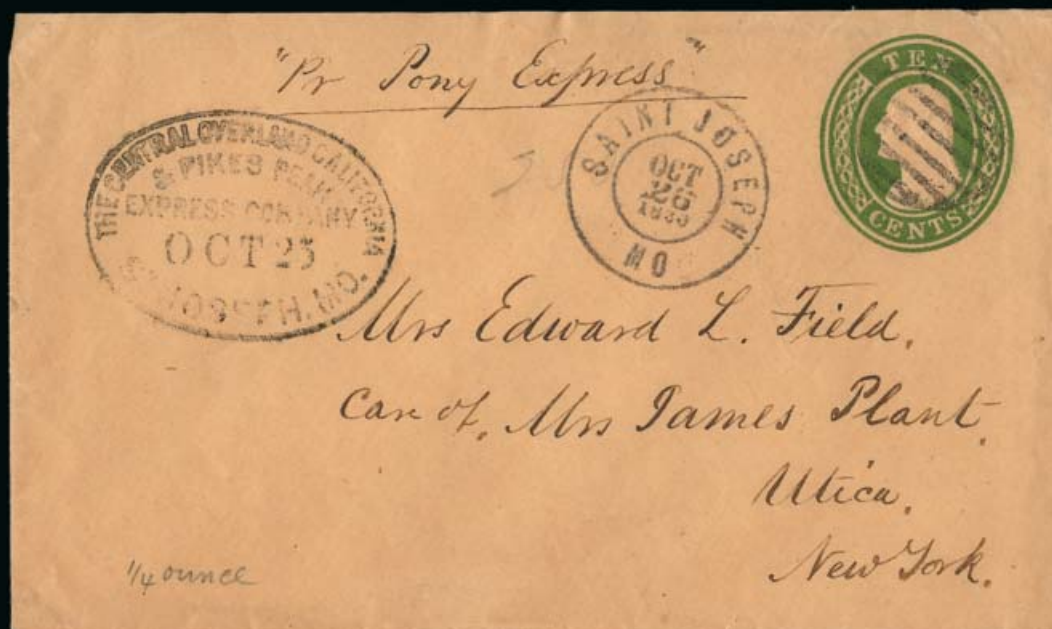 "Pr Pony Express"
THE CENTRAL OVERLAND CALIFORNIA
& PIKES PEAK
EXPRESS COMPANY
OCT 25
ST JOSEPH, MO.
SAINT JOSEPH
OCT
26
MO
TEN
CENTS
Mrs Edward L. Field.
Care of. Mrs James Plant.
Utica.
New York.
1/4 ounce